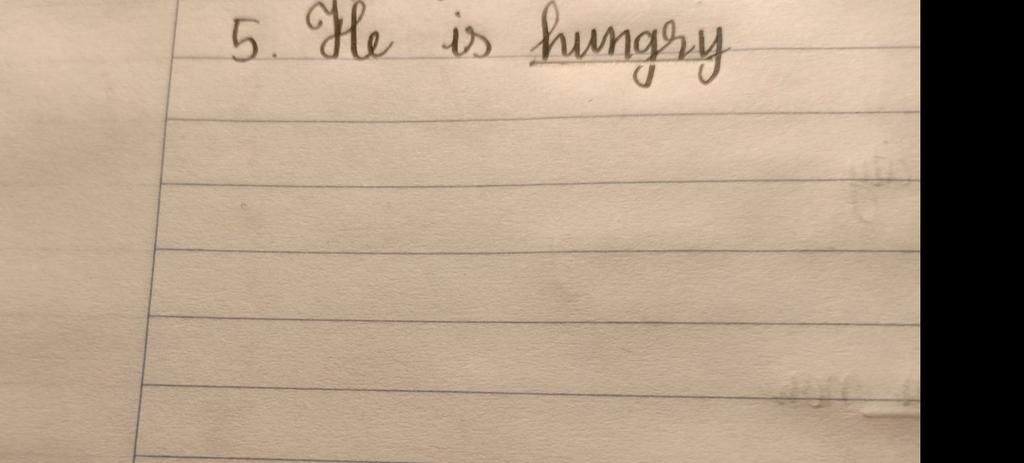 5. He is hungry